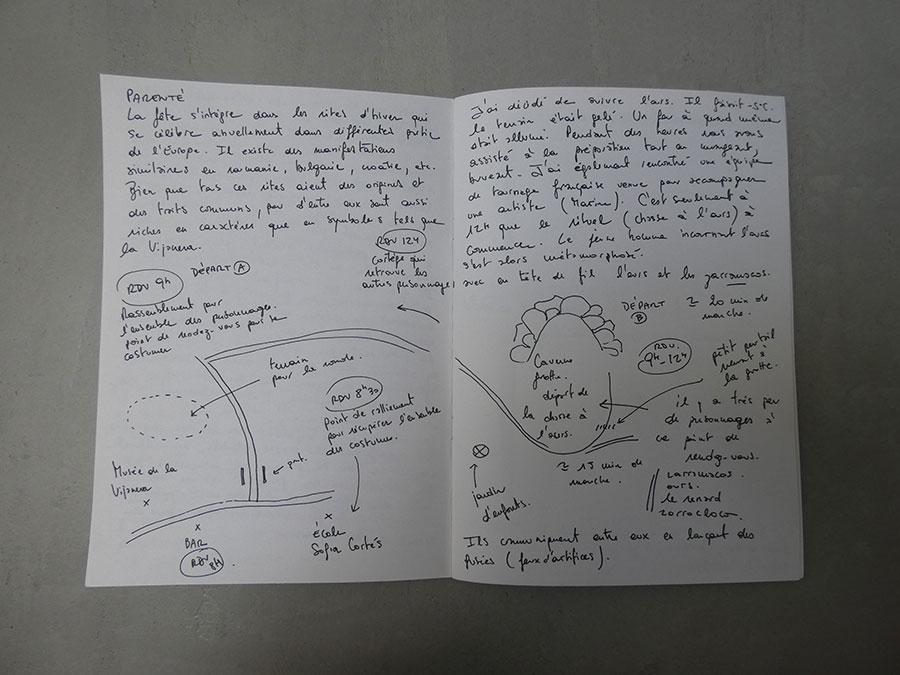 PARENTÉ
La fête s'intègre dans les rites d'hiver qui
se célèbre annuellement dans différentes partie
de l'Europe. Il existe des manifestations
similaires en roumanie, bulgarie, croatie, etc.
Bien que tous ces rites aient des origines et
des traits communs, peu d'entre eux sont aussi
riches en caractères que en symboles tels que
la Vijanera.
RDV 12H
Cortège qui
retrouve les
autres personnages
RDV 9H
DÉPART A
Rassemblement pour
l'ensemble des personnages.
point de rendez-vous pour se
costumer
terrain
pour la ronde.
RDV 8H30
Point de ralliement
pour récupérer l'ensemble
des costumes.
pont.
Musée de la
Vijanera
x
x
BAR
RDV 8H
x
École
Sofia Cortés
J'ai décidé de suivre l'ours. Il faisait -5°C.
le terrain était gelé. Un feu à quand même
était allumé. Pendant des heures nous avons
assisté à la préparation tout en mangeant,
buvant. J'ai également rencontré une équipe
de tournage française venue pour accompagner
une artiste (Marine). C'est seulement à
12H que le rituel (chasse à l'ours) à
commencé. Le jeune homme incarnant l'ours
s'est alors métamorphosé.
avec en tête de fil l'ours et les zarramacos.
DÉPART
B
≃ 20 min de
marche.
RDV.
9H-12H
petit portail
menant à
la grotte.
Caverne
grotte.
départ de
la chasse à
l'ours.
il y a très peu
de personnages à
ce point de
rendez-vous.
≃ 15 min de
marche.
jardin
d'enfants.
zarramacos.
ours.
le renard
zorrocloco.
Ils communiquent entre eux en lançant des
fusées (feux d'artifices).